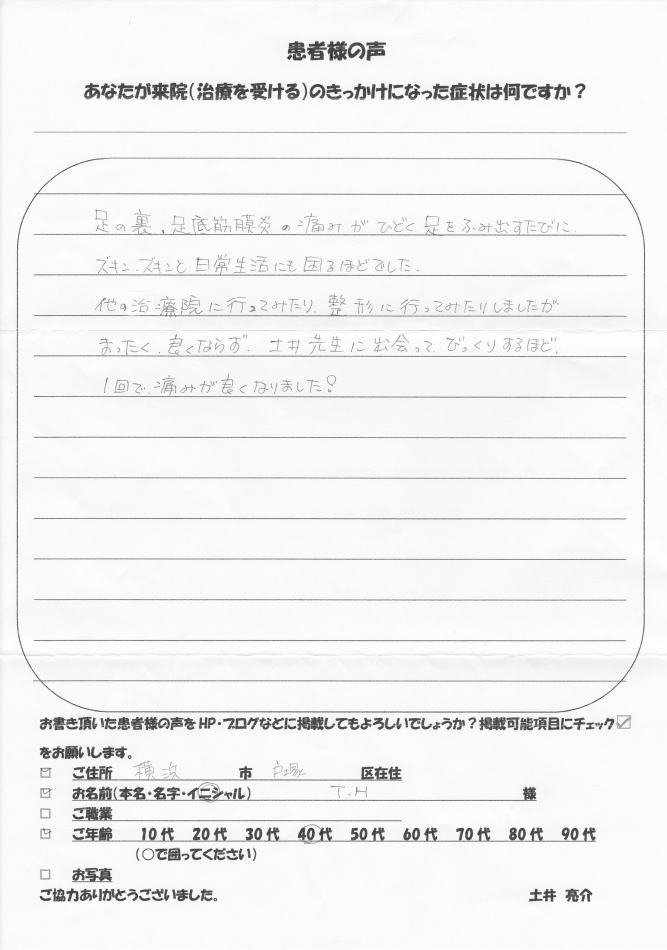 患者様の声
あなたが来院(治療を受ける)のきっかけになった症状は何ですか？
足の裏、足底筋膜炎の痛みがひどく足をふみ出すたびに、
ズキン、ズキンと日常生活にも困るほどでした。
他の治療院に行ってみたり、整形に行ってみたりしましたが
まったく、良くならず、土井先生に出会って、びっくりするほど、
1回で、痛みが良くなりました！
お書き頂いた患者様の声をHP・ブログなどに掲載してもよろしいでしょうか？掲載可能項目にチェック☑
をお願いします。
☑ ご住所 横浜 市 戸塚 区在住
☑ お名前(本名・名字・イニシャル) T.H 様
☐ ご職業
☑ ご年齢 10代 20代 30代 40代 50代 60代 70代 80代 90代
(○で囲ってください)
☐ お写真
ご協力ありがとうございました。 土井 亮介